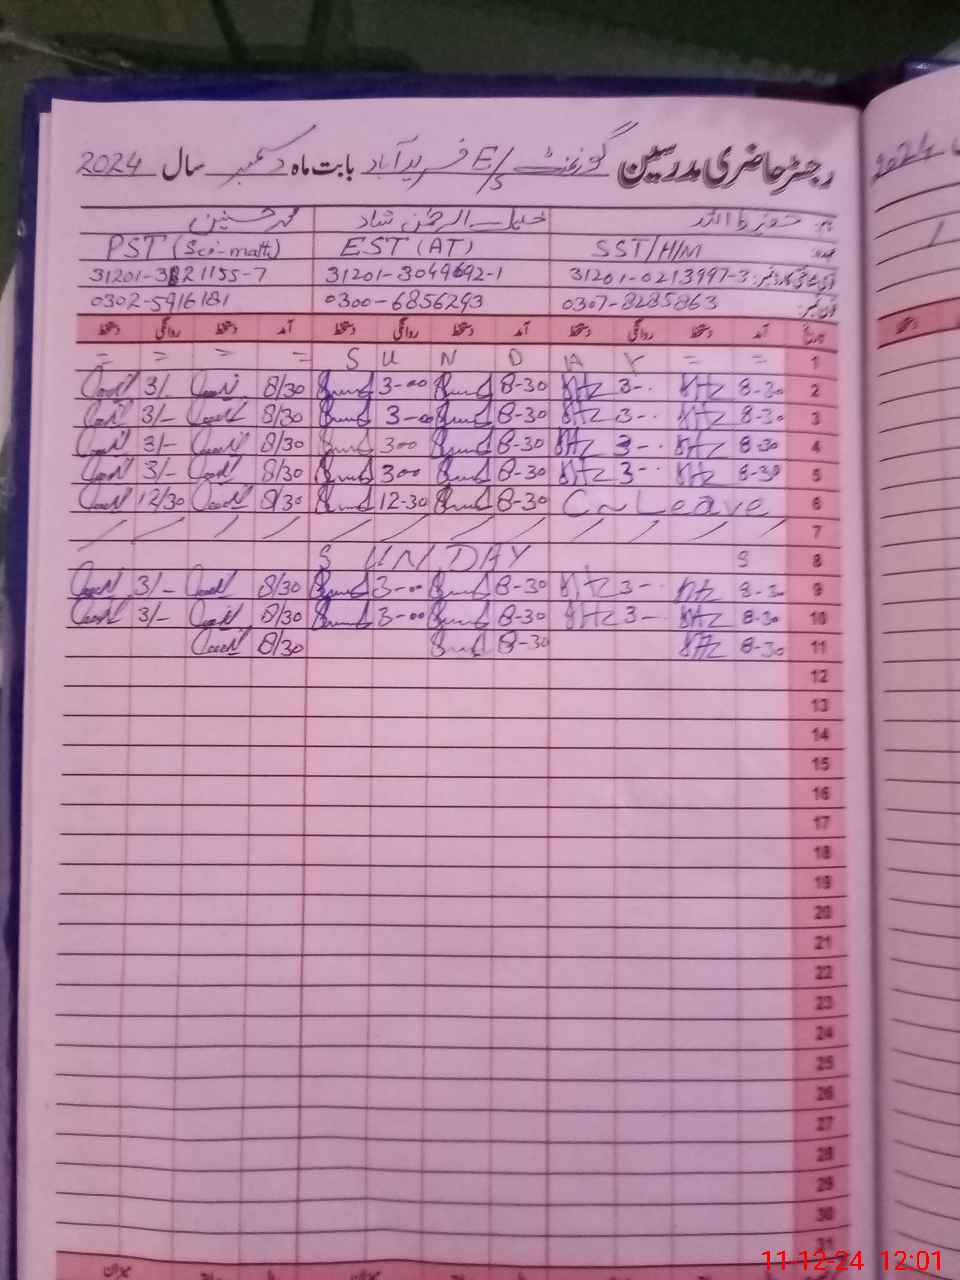 رجسٹر حاضری مدرسین گورنمنٹ E/S فرید آباد بابت ماہ دسمبر سال 2024
نام: حفیظ اللہ خلیل الرحمٰن شاد محمد حسنین
عہدہ: SST/H/M EST (AT) PST (Sci-math)
آئی ڈی کارڈ نمبر: 31201-0213997-3 31201-3049692-1 31201-3821155-7
فون نمبر: 0307-8285863 0300-6856293 0302-5916181
تاریخ آمد دستخط روانگی دستخط آمد دستخط روانگی دستخط آمد دستخط روانگی دستخط
= = S U N D A Y = = 1
3/- 8/30 3-00 8-30 3-. 8-30 2
3/- 8/30 3-00 8-30 3-. 8-30 3
3/- 8/30 300 8-30 3-. 8-30 4
3/- 8/30 300 8-30 3-. 8-30 5
12/30 8/30 12-30 8-30 C~Leave 6
7
SUNDAY S 8
3/- 8/30 3-00 8-30 3-. 8-30 9
3/- 8/30 3-00 8-30 3-. 8-30 10
8/30 8-30 8-30 11
12
13
14
15
16
17
18
19
20
21
22
23
24
25
26
27
28
29
30
31
میزان میزان
11-12-24 12:01
2024